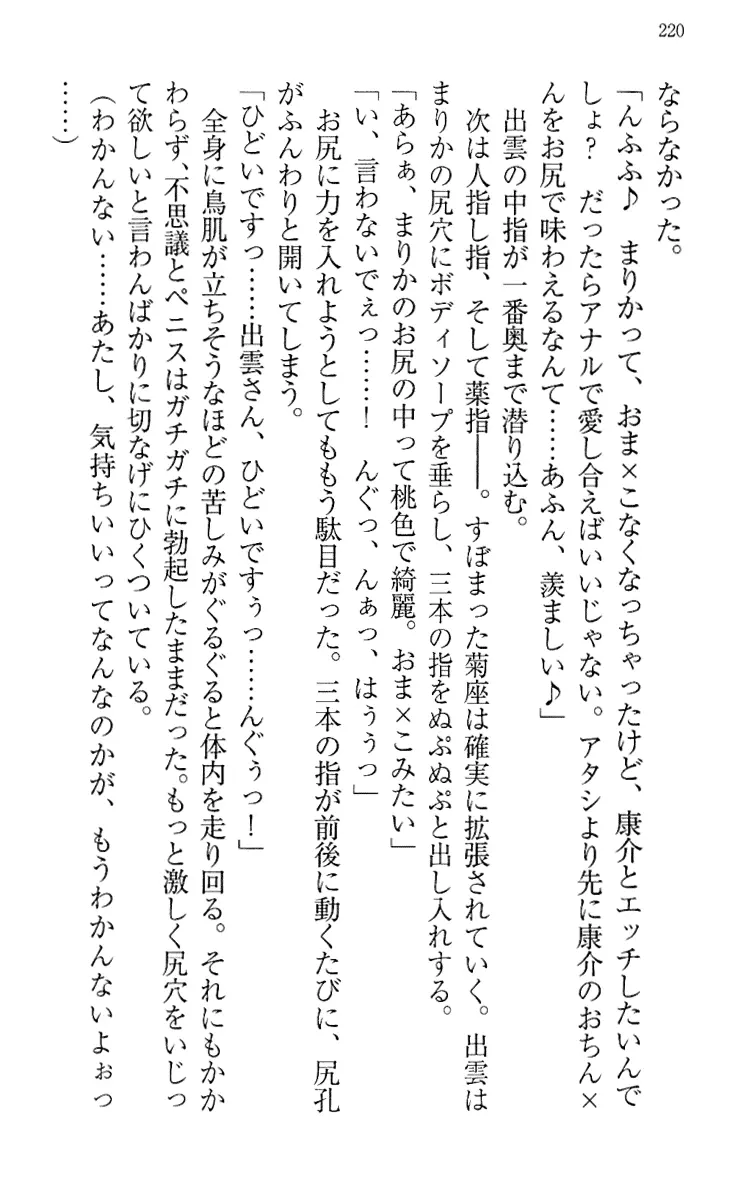 220
ならなかった。
「んふふ♪　まりかって、おま×こなくなっちゃったけど、康介とエッチしたいんで
しょ？　だったらアナルで愛し合えばいいじゃない。アタシより先に康介のおちん×
んをお尻で味わえるなんて……あふん、羨ましい♪」
　出雲の中指が一番奥まで潜り込む。
　次は人指し指、そして薬指――。すぼまった菊座は確実に拡張されていく。出雲は
まりかの尻穴にボディソープを垂らし、三本の指をぬぷぬぷと出し入れする。
「あらぁ、まりかのお尻の中って桃色で綺麗。おま×こみたい」
「い、言わないでぇっ……！　んぐっ、んぁっ、はぅぅっ」
　お尻に力を入れようとしてももう駄目だった。三本の指が前後に動くたびに、尻孔
がふんわりと開いてしまう。
「ひどいですっ……出雲さん、ひどいですぅっ……んぐぅっ！」
　全身に鳥肌が立ちそうなほどの苦しみがぐるぐると体内を走り回る。それにもかか
わらず、不思議とペニスはガチガチに勃起したままだった。もっと激しく尻穴をいじっ
て欲しいと言わんばかりに切なげにひくついている。
（わかんない……あたし、気持ちいいってなんなのかが、もうわかんないよぉっ
……）